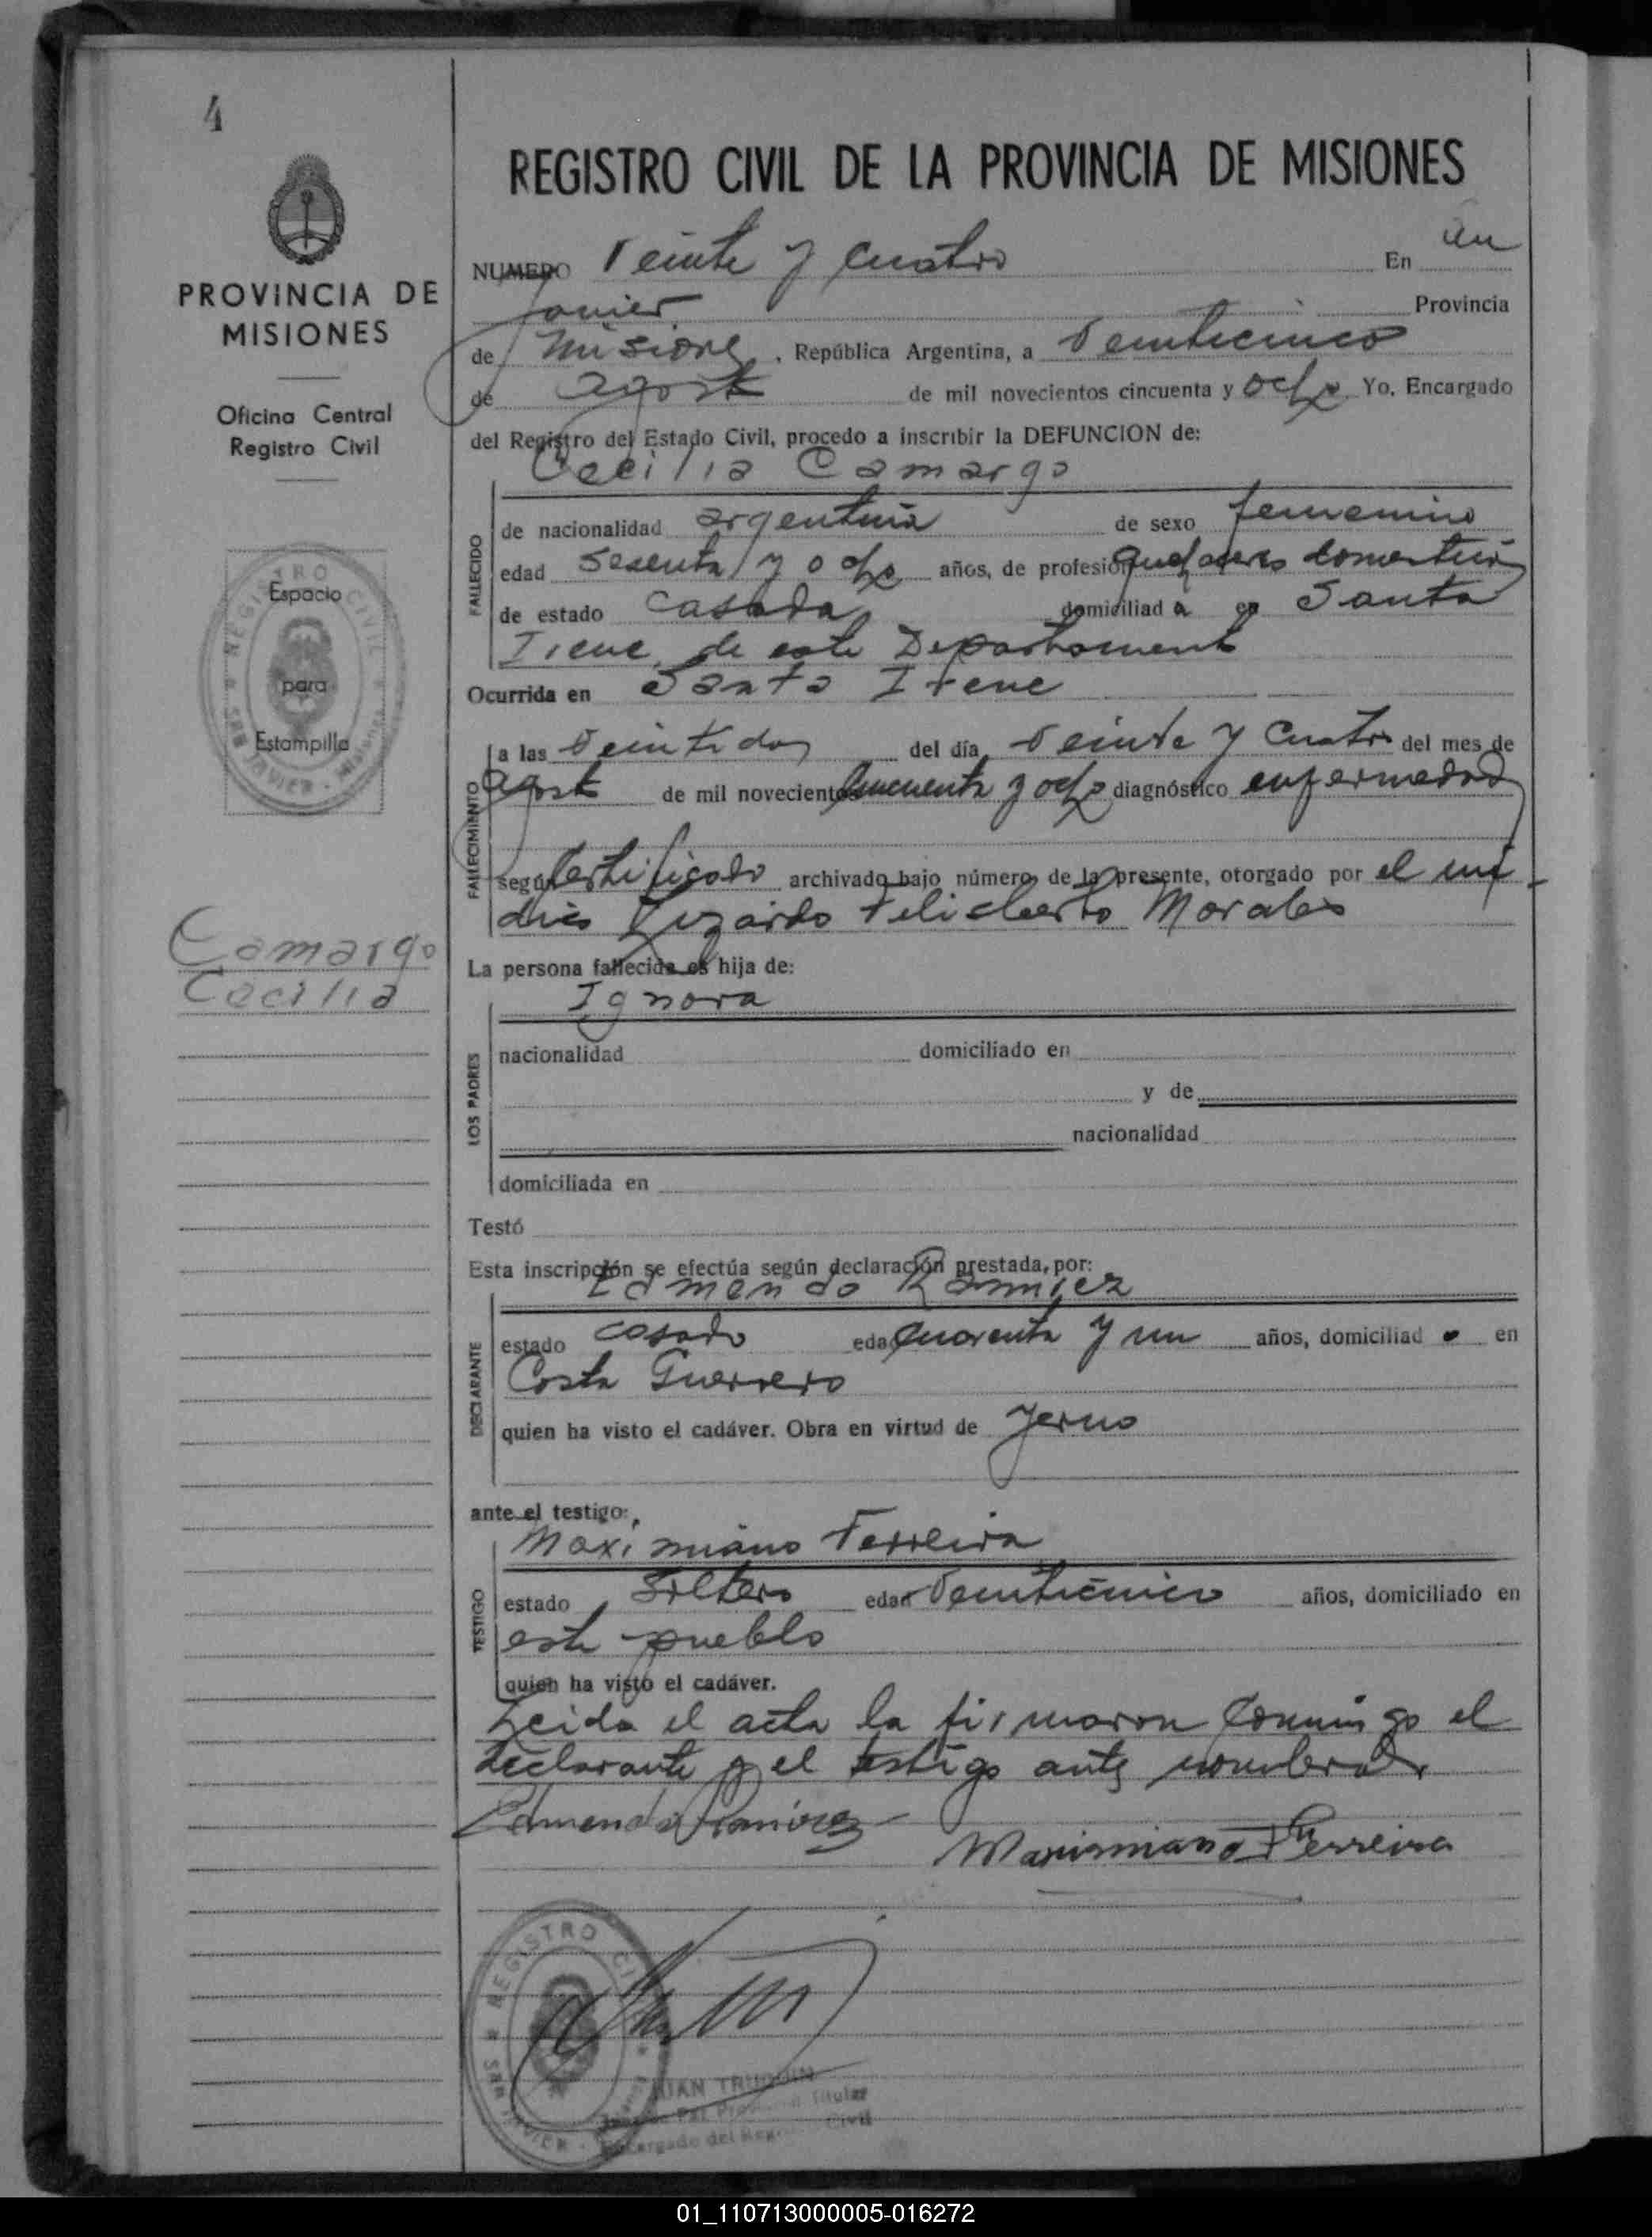 4
PROVINCIA DE
MISIONES
Oficina Central
Registro Civil
REGISTRO CIVIL
Espacio
para
Estampilla
SAN JAVIER - Misiones
Camargo
Cecilia
REGISTRO CIVIL DE LA PROVINCIA DE MISIONES
NUMERO Veinte y Cuatro En San
Javier Provincia
de Misiones, República Argentina, a Veinticinco
de agosto de mil novecientos cincuenta y ocho Yo, Encargado
del Registro del Estado Civil, procedo a inscribir la DEFUNCION de:
Cecilia Camargo
FALLECIDO
de nacionalidad argentina de sexo femenino
edad Sesenta y ocho años, de profesión quehaceres domesticos
de estado casada domiciliad a en Santa
Irene de este Departamento
Ocurrida en Santa Irene
FALLECIMINTO
a las Veintidos del día Veinte y Cuatro del mes de
agosto de mil novecientos cincuenta y ocho diagnóstico enfermedad
según Certificado archivado bajo número de la presente, otorgado por el mé-
dico Lizardo Feliciberto Morales
La persona fallecida es hija de:
Ignora
LOS PADRES
nacionalidad domiciliado en
y de
nacionalidad
domiciliada en
Testó
Esta inscripción se efectúa según declaración prestada, por:
Edmendo Ramirez
DECLARANTE
estado casado edad Cuarenta y un años, domiciliad o en
Costa Guerrero
quien ha visto el cadáver. Obra en virtud de Yerno
ante el testigo:
Maximiano Ferreira
TESTIGO
estado Soltero edad Veinticinco años, domiciliado en
este pueblo
quien ha visto el cadáver.
Leida el acta la firmaron conmigo el
declarante y el testigo ante nombrados.
Edmendo Ramirez
Maximiano Ferreira
REGISTRO CIVIL
SAN JAVIER
JUAN
Juez de Paz Titular
Encargado del Reg. Civil
01_110713000005-016272